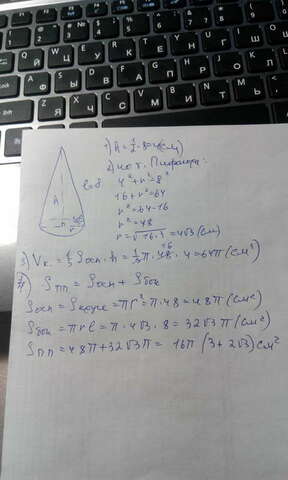 1) h = 1/2 · 8 = 4 (см)
2) по т. Пифагора:
4² + r² = 8²
16 + r² = 64
r² = 64 - 16
r² = 48
r = √16·3 = 4√3 (см)
h
l = 8
r
3) Vк = 1/3 Sосн · h = 1/3 π · 48 · 4 = 64π (см³)
16
4) Sпп = Sосн + Sбок
Sосн = Sкруга = πr² = π · 48 = 48π (см²)
Sбок = πrl = π · 4√3 · 8 = 32√3 π (см²)
Sпп = 48π + 32√3π = 16π (3 + 2√3) см²